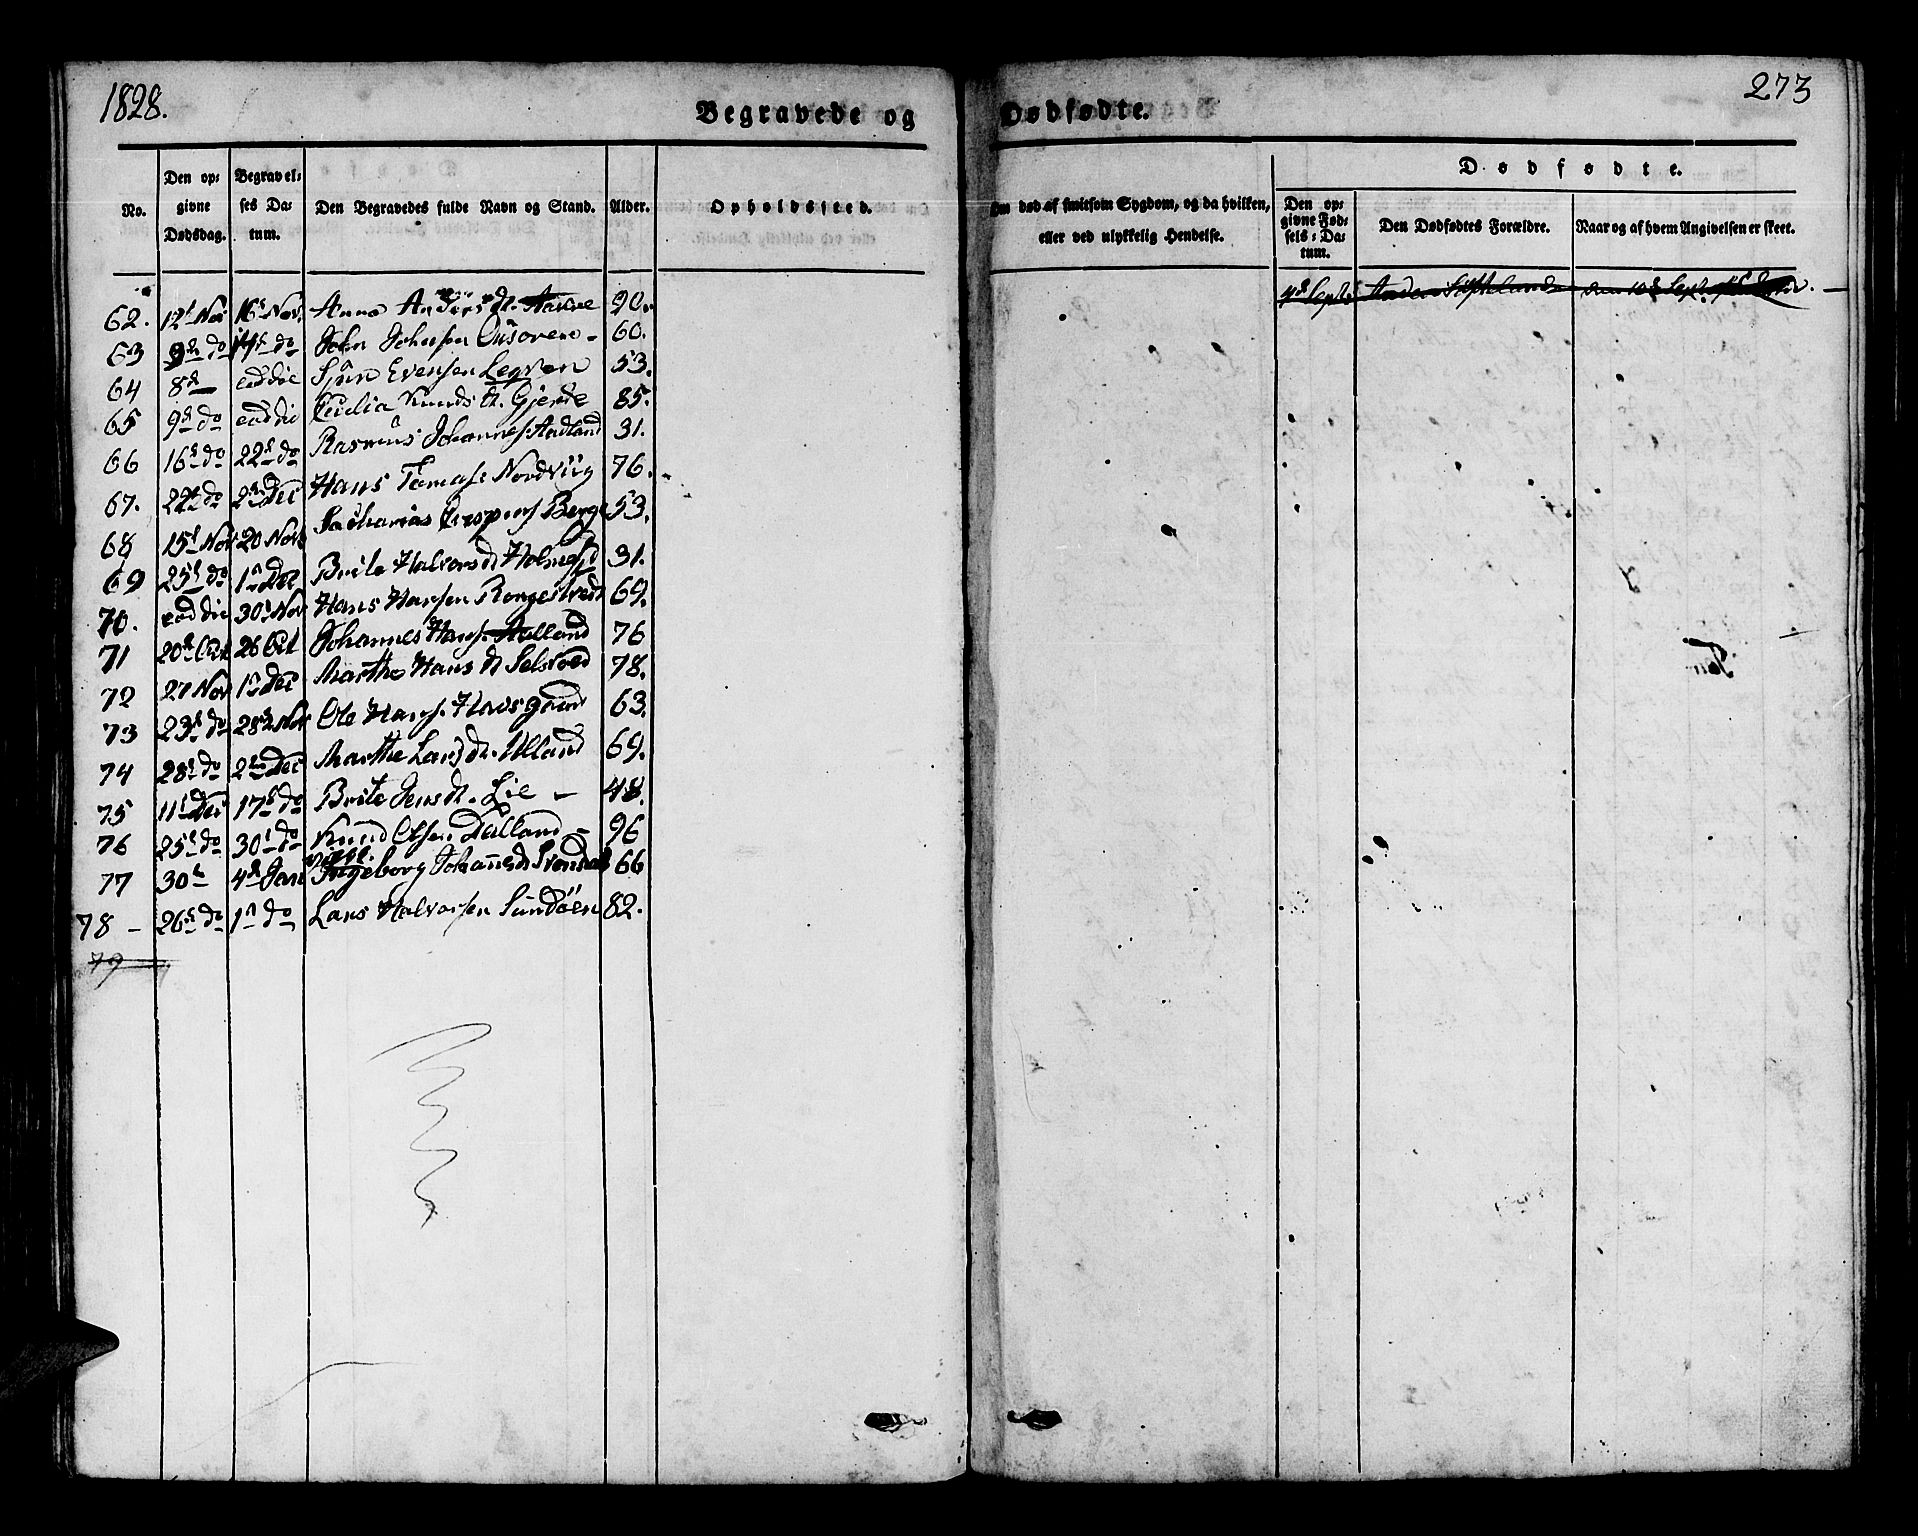 1828.
273
Begravede og Dødfødte.
No.
Den op-
givne
Dødsdag.
Begravel-
ses Da-
tum.
Den Begravedes fulde Navn og Stand.
Alder.
Opholdssted.
Om død af smitsom Sygdom, og da hvilken,
eller ved ulykkelig Hendelse.
Dødfødte.
Den op-
givne Fød-
sels-Da-
tum.
Den Dødfødtes Forældre.
Naar og af hvem Angivelsen er skeet.
62. 12t Nov 16t Nov. Anna Anders d. 90.
63 9d do do John Johnsen 60.
64 8d eod die Sjur Evensen 53.
65 9d do eod die Cecilia Knuds d. Gjerde 85.
66 16d do 22d do Rasmus Johannes. Aadland 31.
67. 22d do 2d Dec Hans Tomas. Nordviig 76.
68 15d Nov 20 Nov Berge 53.
69 25d do 1d Dec Brite Halvors d 31.
70. eod die 30d Nov Hans Hansen 69.
71 20d Oct 26 Oct Johannes Hans. 76
72 27 Nov 1d Dec Marthe Hans d 78.
73 23d do 28d Nov Ole Hans. 63.
74 28d do 2d Dec Marthe Lars d. Ulland 69.
75 11d Dec 17d do Brite Jens d. Lie - 48.
76 25d do 30d do Knud Olsen Dalland - 96
77 30d 4d Jan Ingeborg Johannes d 66
78 - 26d do 1d do Lars Halvorsen Sundöen 82.
79
4d Septr den 10d Sept.